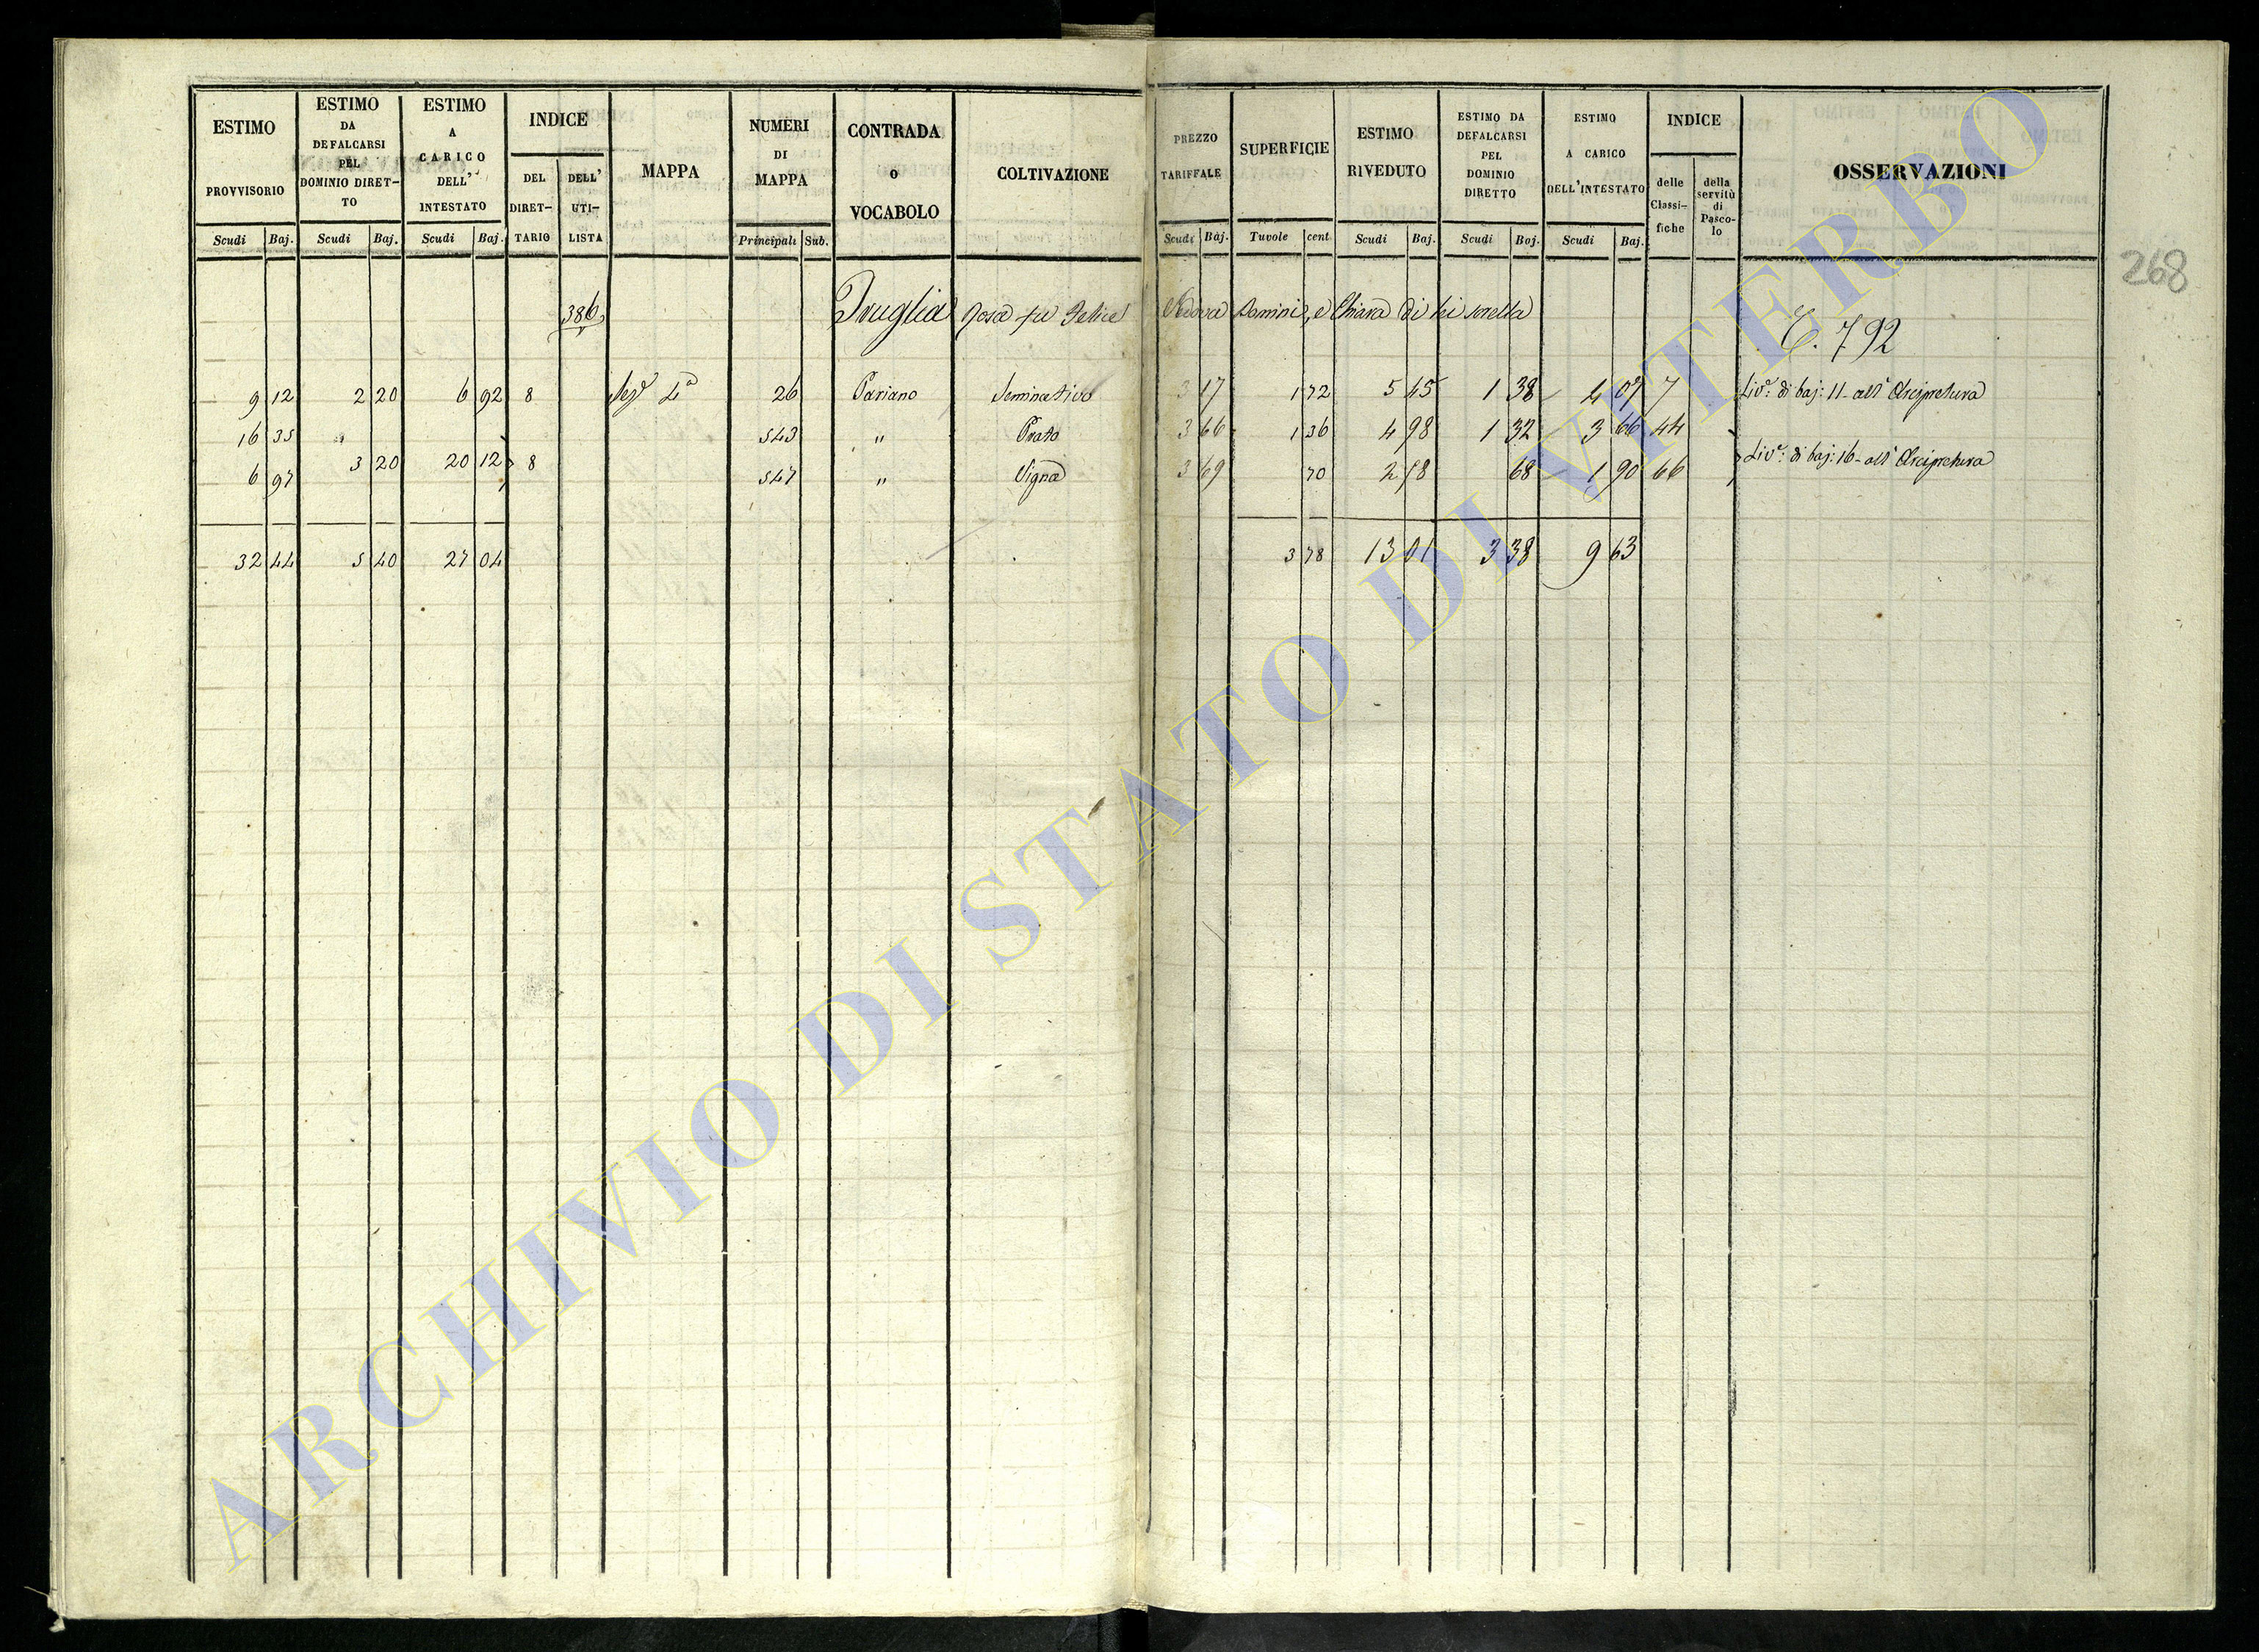 ESTIMO PROVVISORIO Scudi Baj.
ESTIMO DA DEFALCARSI PEL DOMINIO DIRET-TO Scudi Baj.
ESTIMO A CARICO DELL' INTESTATO Scudi Baj.
INDICE DEL DIRET-TARIO DELL' UTI-LISTA
MAPPA
NUMERI DI MAPPA Principali Sub.
CONTRADA O VOCABOLO
COLTIVAZIONE
PREZZO TARIFFALE Scudi Baj.
SUPERFICIE Tavole cent.
ESTIMO RIVEDUTO Scudi Baj.
ESTIMO DA DEFALCARSI PEL DOMINIO DIRETTO Scudi Baj.
ESTIMO A CARICO DELL'INTESTATO Scudi Baj.
INDICE delle Classi-fiche della servitù di Pasco-lo
OSSERVAZIONI
268
386 Truglia Rosa fu Felice Vedova Pannini, e Chiara di lei sorella
792
9 12 2 20 6 92 8 Sez.e 4a 26 Pariano Seminativo 3 17 1 72 5 45 1 38 4 07 7 Liv.o di baj: 11 all' Arcipretura
16 35 543 " Prato 3 66 1 36 4 98 1 32 3 66 44
3 20 20 12 8 Liv.o di baj: 16 all' Arcipretura
6 97 547 " Vigna 3 69 70 2 58 68 1 90 66
32 44 5 40 27 04 3 78 13 01 3 38 9 63
ARCHIVIO DI STATO DI VITERBO